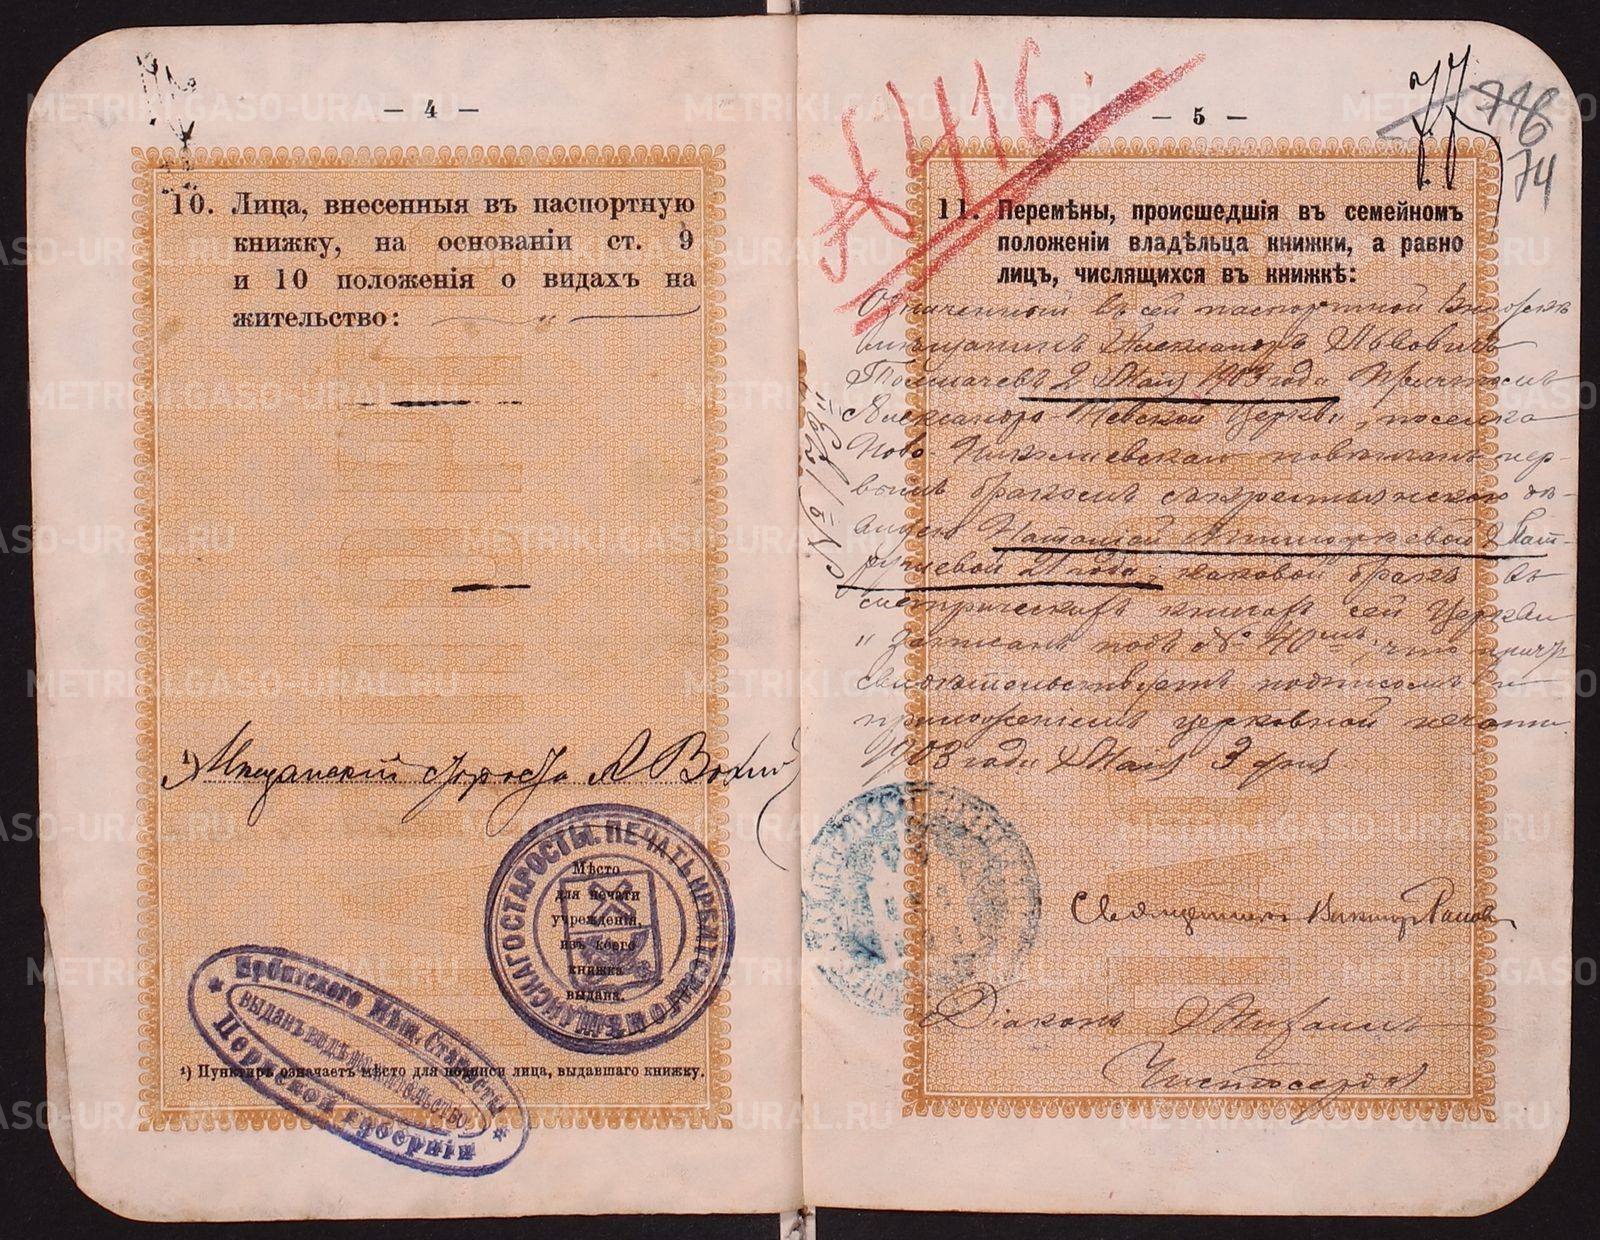 — 4 —
10. Лица, внесенныя въ паспортную
книжку, на основаніи ст. 9
и 10 положенія о видахъ на
жительство: — „ —
¹) Мѣщанскій староста А
ПЕЧАТЬ ИРБИТСКАГО МѢЩАНСКАГО СТАРОСТЫ.
Мѣсто
для печати
учрежденія,
изъ коего
книжка
выдана.
Ирбитскаго Мѣщ. Старосты
ВЫДАНЪ ВИДЪ НА ЖИТЕЛЬСТВО
Пермской губерніи
¹) Пунктиръ означаетъ мѣсто для подписи лица, выдавшаго книжку.
№ 416
— 5 —
77
716
74
11. Перемѣны, происшедшія въ семейномъ
положеніи владѣльца книжки, а равно
лицъ, числящихся въ книжкѣ:
Означенный въ сей паспортной книжкѣ
мѣщанинъ Александръ Львовичъ
Толмачевъ 2 Мая 1903 года Причтомъ
Александро-Невской Церкви, поселка
Ново-Николаевскаго повѣнчанъ пер-
вымъ бракомъ съ крестьянскою дѣ-
вицею Наталіей
21 года; каковой бракъ въ
метрическихъ книгахъ сей Церкви
записанъ подъ № 40мъ, что причтъ
свидѣтельствуетъ подписомъ и
приложеніемъ церковной печати
1903 года Мая 3 дня.
Священникъ Викторъ
Діаконъ Михаилъ
Чистосердовъ
METRIKI.GASO-URAL.RU